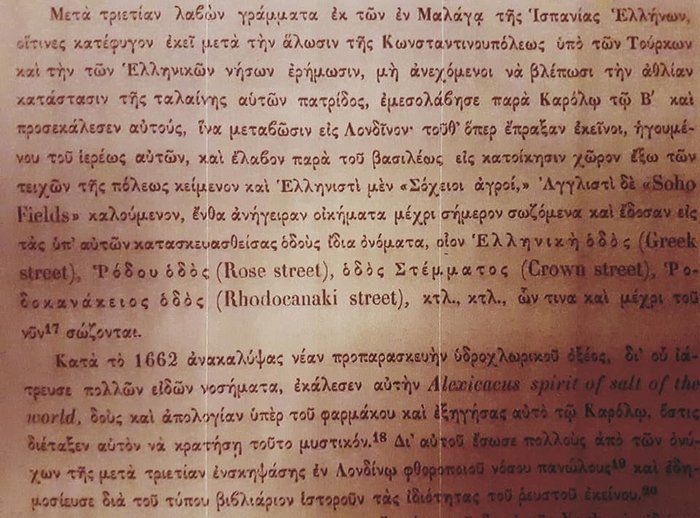 Μετὰ τριετίαν λαβὼν γράμματα ἐκ τῶν ἐν Μαλάγᾳ τῆς Ἱσπανίας Ἑλλήνων,
οἵτινες κατέφυγον ἐκεῖ μετὰ τὴν ἅλωσιν τῆς Κωνσταντινουπόλεως ὑπὸ τῶν Τούρκων
καὶ τὴν τῶν Ἑλληνικῶν νήσων ἐρήμωσιν, μὴ ἀνεχόμενοι νὰ βλέπωσι τὴν ἀθλίαν
κατάστασιν τῆς ταλαίνης αὐτῶν πατρίδος, ἐμεσολάβησε παρὰ Καρόλῳ τῷ Β′ καὶ
προσεκάλεσεν αὐτούς, ἵνα μεταβῶσιν εἰς Λονδῖνον· τοῦθ' ὅπερ ἔπραξαν ἐκεῖνοι, ἡγουμέ-
νου τοῦ ἱερέως αὐτῶν, καὶ ἔλαβον παρὰ τοῦ βασιλέως εἰς κατοίκησιν χῶρον ἔξω τῶν
τειχῶν τῆς πόλεως κείμενον καὶ Ἑλληνιστὶ μὲν «Σόχειοι ἀγροί,» Ἀγγλιστὶ δὲ «Soho
Fields» καλούμενον, ἔνθα ἀνήγειραν οἰκήματα μέχρι σήμερον σωζόμενα καὶ ἔδοσαν εἰς
τὰς ὑπ' αὐτῶν κατασκευασθείσας ὁδοὺς ἴδια ὀνόματα, οἷον Ἑλληνικὴ ὁδὸς (Greek
street), Ῥόδου ὁδὸς (Rose street), ὁδὸς Στέμματος (Crown street), Ῥο-
δοκανάκειος ὁδὸς (Rhodocanaki street), κτλ., κτλ., ὧν τινα καὶ μέχρι τοῦ
νῦν17 σώζονται.
Κατὰ τὸ 1662 ἀνακαλύψας νέαν προπαρασκευὴν ὑδροχλωρικοῦ ὀξέος, δι' οὗ ἰά-
τρευσε πολλῶν εἰδῶν νοσήματα, ἐκάλεσεν αὐτὴν Alexicacus spirit of salt of the
world, δοὺς καὶ ἀπολογίαν ὑπὲρ τοῦ φαρμάκου καὶ ἐξηγήσας αὐτὸ τῷ Καρόλῳ, ὅστις
διέταξεν αὐτὸν νὰ κρατήσῃ τοῦτο μυστικόν.18 Δι' αὐτοῦ ἔσωσε πολλοὺς ἀπὸ τῶν ὀνύ-
χων τῆς μετὰ τριετίαν ἐνσκηψάσης ἐν Λονδίνῳ φθοροποιοῦ νόσου πανώλους19 καὶ ἐδη-
μοσίευσε διὰ τοῦ τύπου βιβλιάριον ἱστοροῦν τὰς ἰδιότητας τοῦ ῥευστοῦ ἐκείνου.20